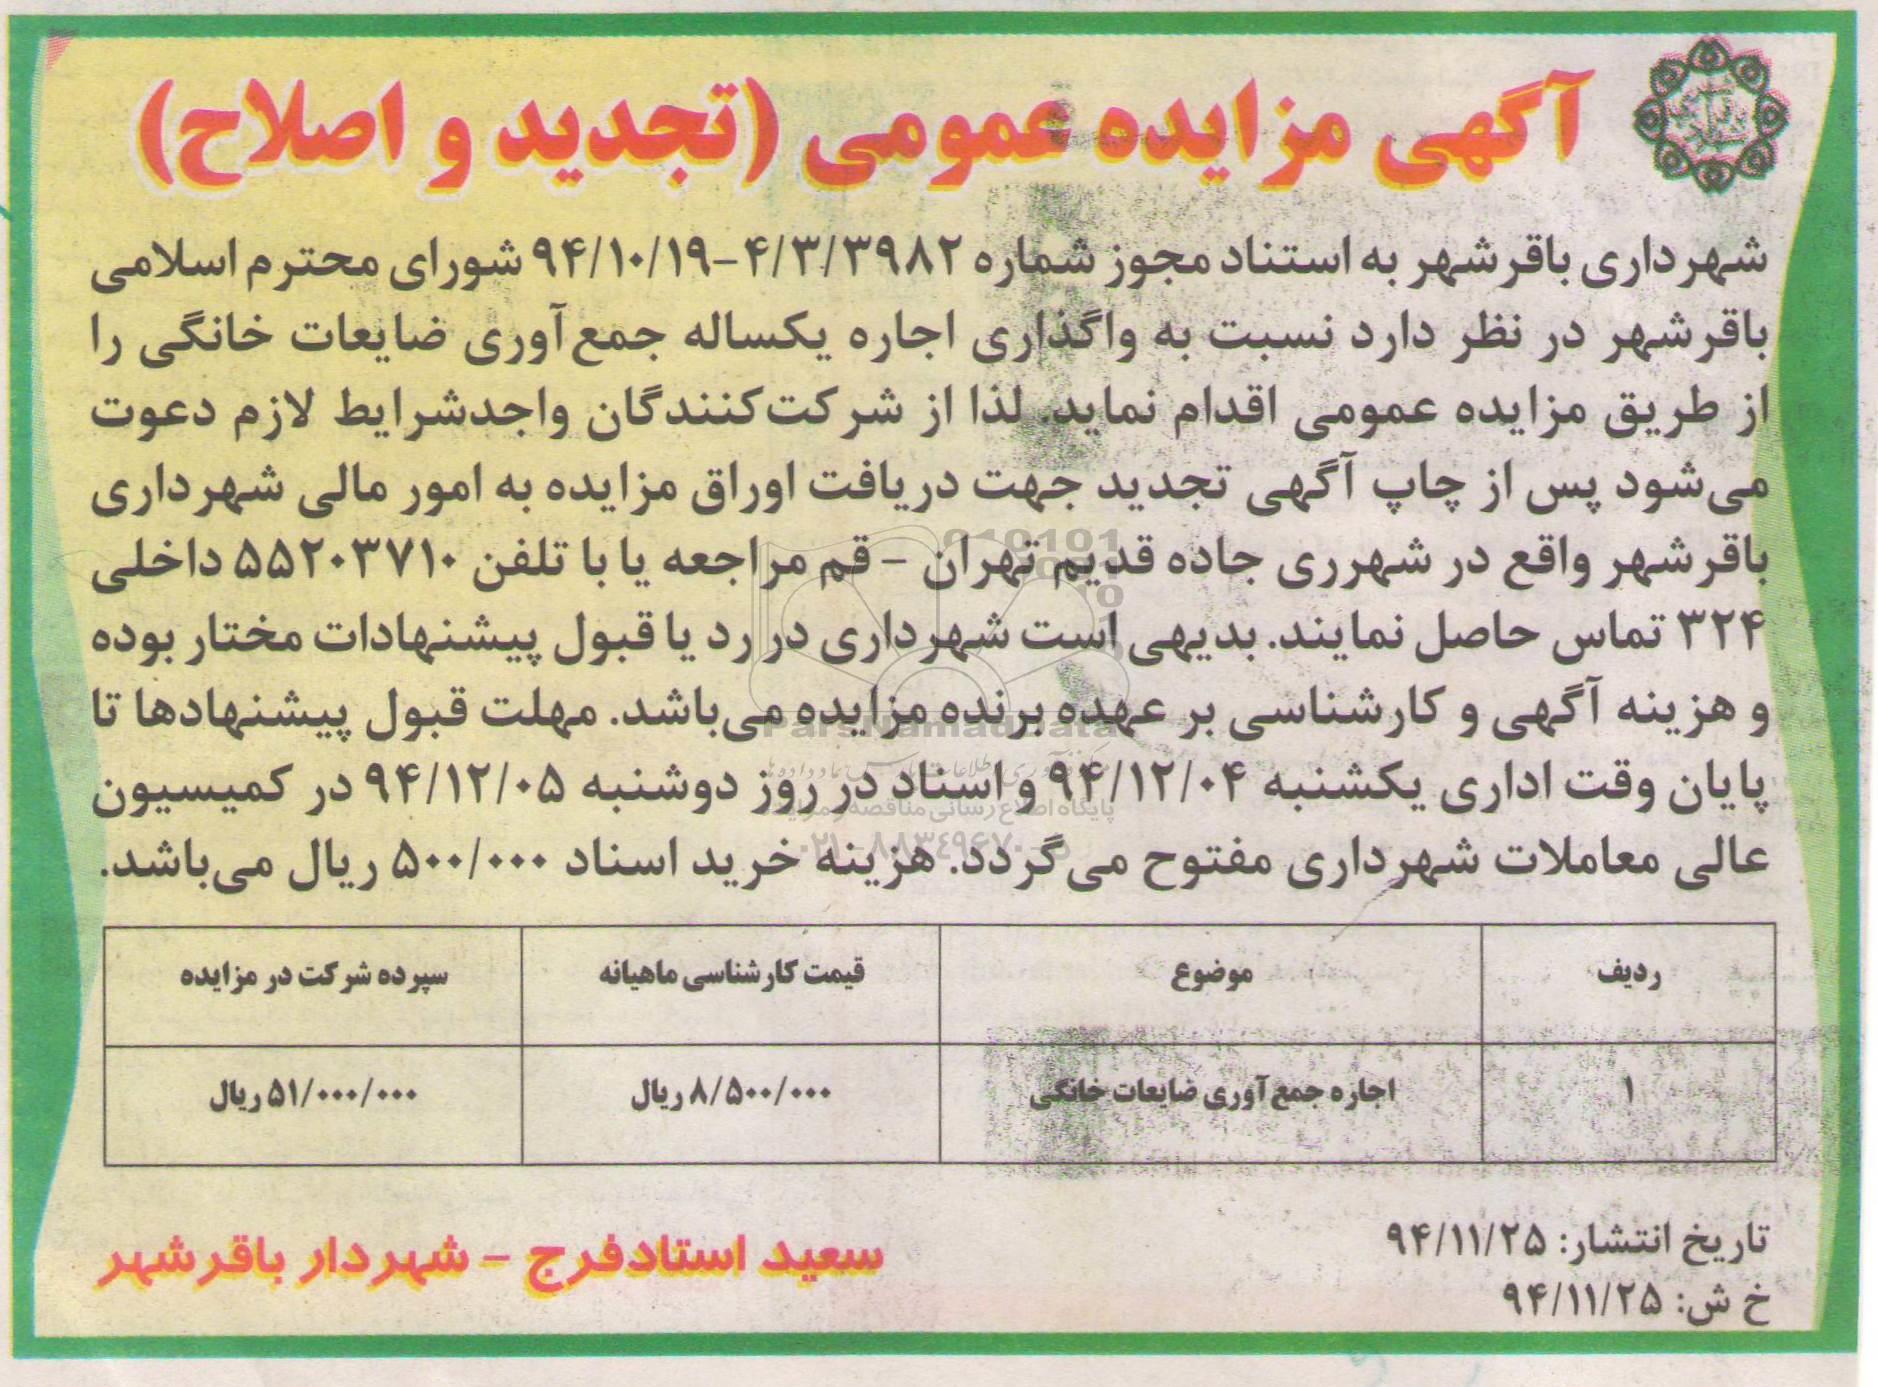 آگهی مزایده عمومی (تجدید و اصلاح)
شهرداری باقرشهر به استناد مجوز شماره ۴/۳/۳۹۸۲-۹۴/۱۰/۱۹ شورای محترم اسلامی
باقرشهر در نظر دارد نسبت به واگذاری اجاره یکساله جمع‌آوری ضایعات خانگی را
از طریق مزایده عمومی اقدام نماید. لذا از شرکت‌کنندگان واجدشرایط لازم دعوت
می‌شود پس از چاپ آگهی تجدید جهت دریافت اوراق مزایده به امور مالی شهرداری
باقرشهر واقع در شهرری جاده قدیم تهران - قم مراجعه یا با تلفن ۵۵۲۰۳۷۱۰ داخلی
۳۲۴ تماس حاصل نمایند. بدیهی است شهرداری در رد یا قبول پیشنهادات مختار بوده
و هزینه آگهی و کارشناسی بر عهده برنده مزایده می‌باشد. مهلت قبول پیشنهادها تا
پایان وقت اداری یکشنبه ۹۴/۱۲/۰۴ و اسناد در روز دوشنبه ۹۴/۱۲/۰۵ در کمیسیون
عالی معاملات شهرداری مفتوح می‌گردد. هزینه خرید اسناد ۵۰۰/۰۰۰ ریال می‌باشد.
ردیف موضوع قیمت کارشناسی ماهیانه سپرده شرکت در مزایده
۱ اجاره جمع‌آوری ضایعات خانگی ۸/۵۰۰/۰۰۰ ریال ۵۱/۰۰۰/۰۰۰ ریال
تاریخ انتشار: ۹۴/۱۱/۲۵
خ ش: ۹۴/۱۱/۲۵
سعید استادفرج - شهردار باقرشهر
ParsNamadData
پایگاه اطلاع رسانی مناقصه و مزایده
۰۲۱-۸۸۳۴۹۶۷۰